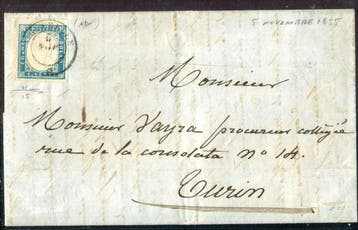 5 NOVEMBRE 1855
Monsieur
Monsieur Vayra procureur collégié
rue de la consolata N° 14.
Turin